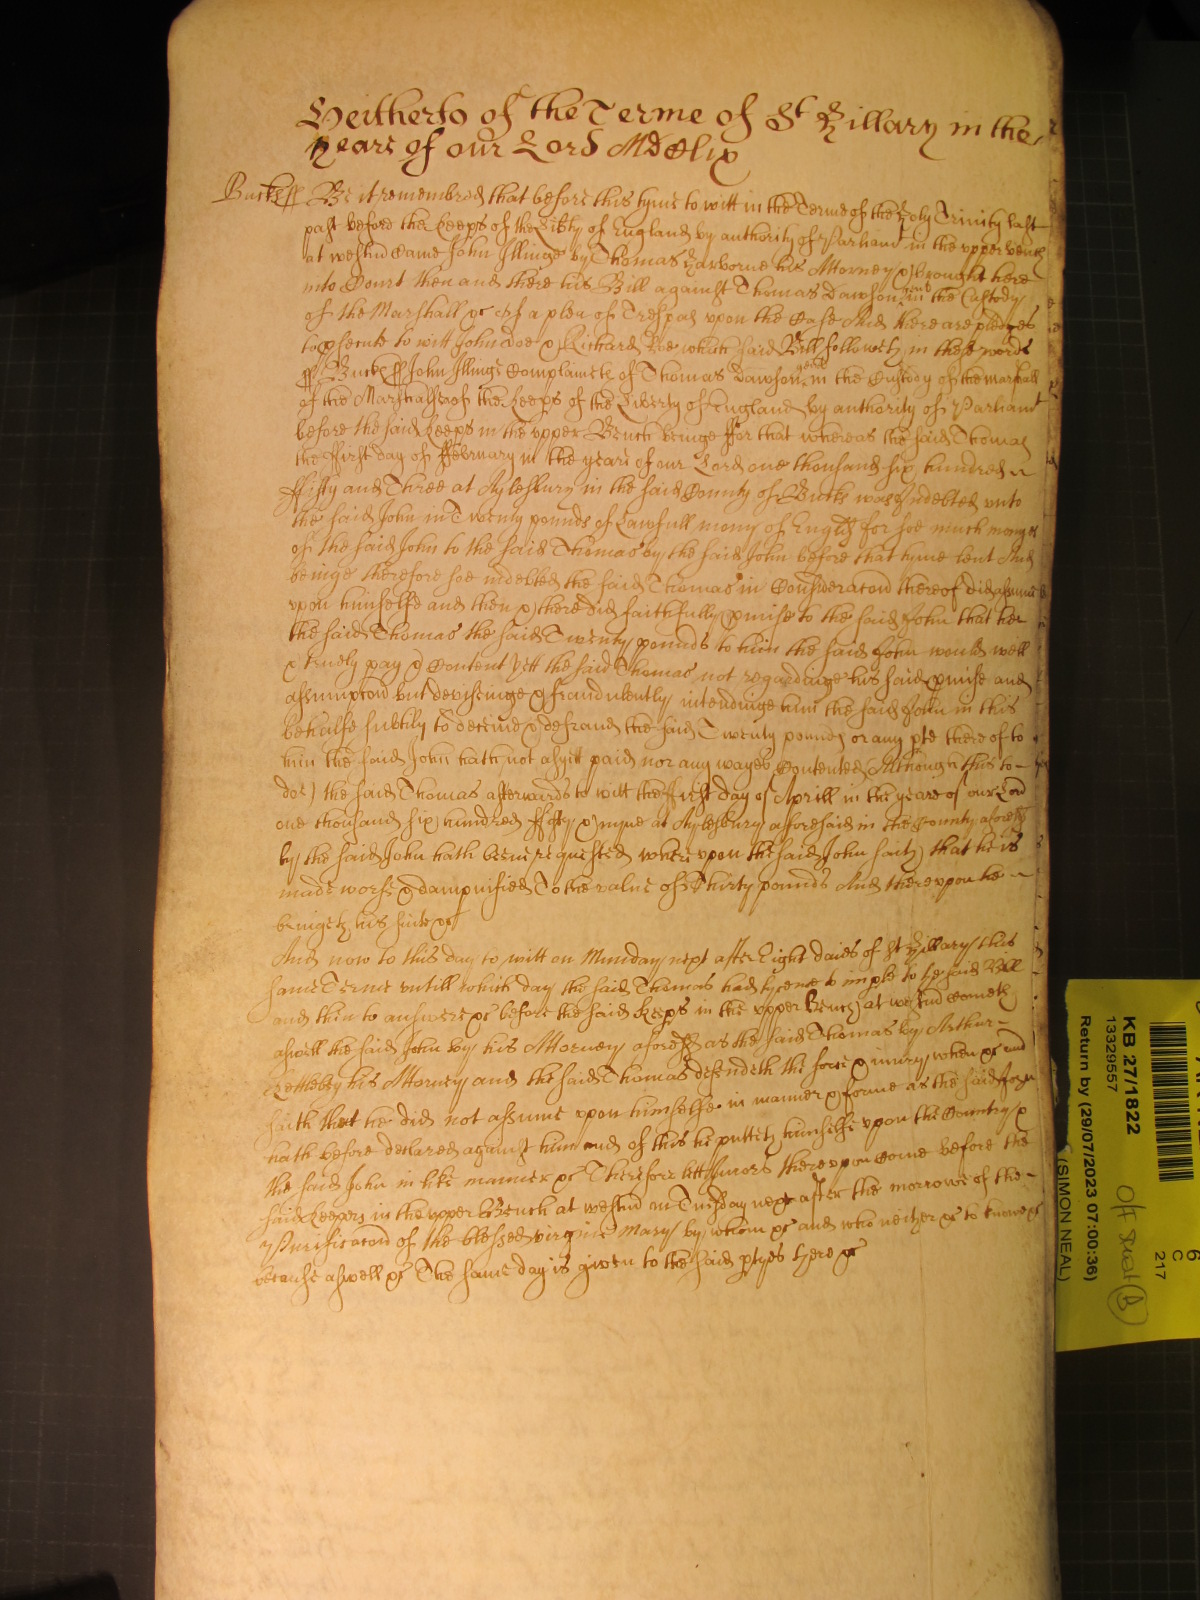 Yeitherto of the Terme of St Hillary in the
yeare of our Lord MdClix
Buck ss Be it remembred that before this tyme to witt in the Terme of the Holy Trinity last
past before the Keeps of the Libty of England by authority of Parliamt in the upper bench
at westm Came John Illinge by Thomas Harborne his Attorney & brought here
into Court then and there his Bill against Thomas Dawson gent in the Custody
of the Marshall &c of a plea of Trespas upon the Case And there are pledges
to psecute to witt John doe & Richard Roe which said Bill followeth in these words
ss Buck ss John Illinge Complaineth of Thomas Dawson gent in the Custody of the Marshall
of the Marshalsea of the Keeps of the Liberty of England by authority of Parliamt
before the said Keeps in the upper Bench beinge ffor that whereas the said Thomas
the ffirst day of ffebruary in the yeare of our Lord one thousand six hundred
ffifty and Three at Aylesbury in the said County of Bucks was Indebted unto
the said John in Twenty pounds of Lawfull mony of Engld for soe much money
of the said John to the said Thomas by the said John before that tyme lent And
beinge therefore soe indebted the said Thomas in Consideracon thereof did assume
upon himselfe and then & there did faithfully pmise to the said John that hee
the said Thomas the said Twenty pounds to him the said John would well
& truely pay & Content Yett the said Thomas not regardinge his said pmise and
assumpcon but deviseinge & fraudulently intendinge him the said John in this
behalfe subtily to deceive & defraud the said Twenty pounds or any pte thereof to
him the said John hath not as yett paid nor any wayes Contented (Although this to
doe) the said Thomas afterwards to witt the ffirst day of Aprill in the yeare of our Lord
one thousand six hundred ffifty & nyne at Aylesbury aforesaid in the County aforesd
by the said John hath beene requested whereupon the said John saith that he is
made worse & dampnified To the value of Thirty pounds And thereupon he
bringeth his suite &c
And now to this day to witt on Munday next after Eight daies of St Hillary this
same Terme untill which day the said Thomas had lycence to imple to the said Bill
and then to answere &c before the said Keeps in the upper Bench at westm Cometh
aswell the said John by his Attorney aforesd as the said Thomas by Arthur
Kettleby his Attorney and the said Thomas defendeth the force & iniury when &c and
saith that he did not assume upon himselfe in manner & forme as the said John
hath before declared against him and of this he putteth himselfe upon the Country &
the said John in like manner &c Therefore lett Jurors thereupon Come before the
said Keepers in the upper Bench at westm on Tuesday next after the morrowe of the
Purificacon of the blessed virgine Mary by whom &c and who neither &c to knowe &c
because aswell &c The same day is given to the said ptyes here &c
KB 27/1822
13329557
Return by (29/07/2023 07:00:36)
(SIMON NEAL)
6
C
217